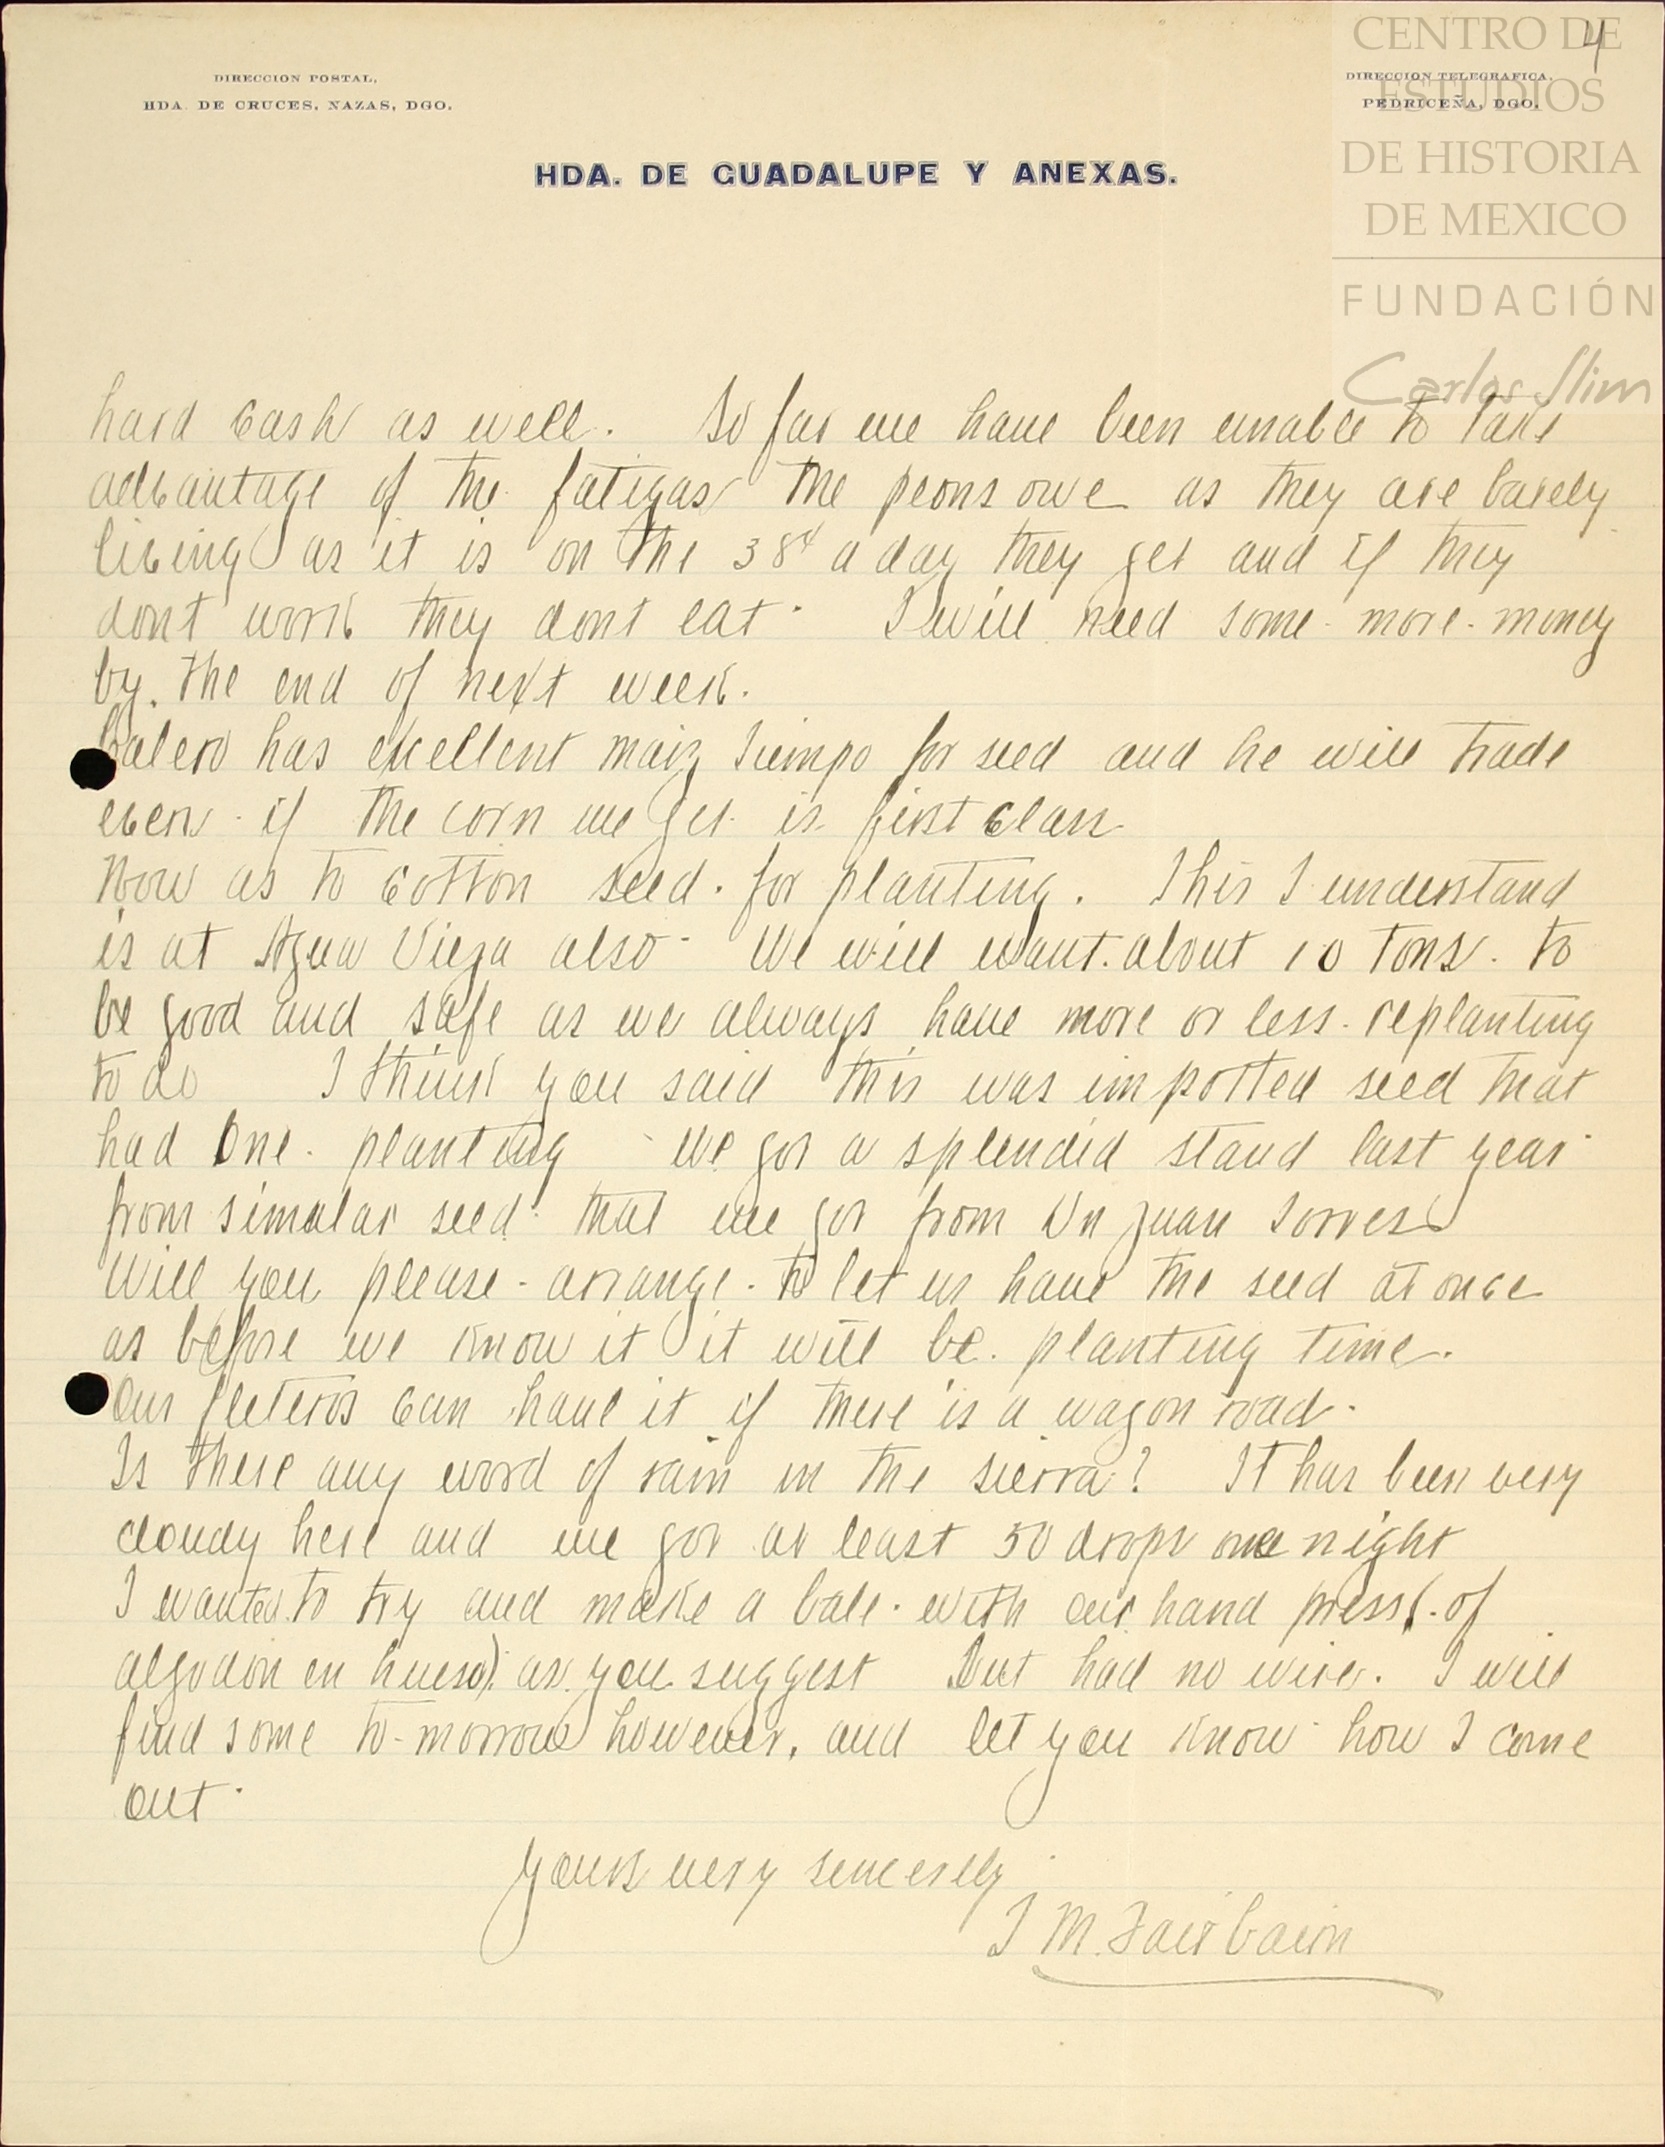 4
CENTRO DE
ESTUDIOS
DE HISTORIA
DE MEXICO
FUNDACIÓN
Carlos Slim
DIRECCION POSTAL,
HDA. DE CRUCES, NAZAS, DGO.
DIRECCION TELEGRAFICA.
PEDRICEÑA, DGO.
HDA. DE GUADALUPE Y ANEXAS.
hard cash as well. So far we have been unable to take
advantage of the fatigas the peons owe as they are barely
living as it is on the 38¢ a day they get and if they
dont work they dont eat. I will need some more money
by the end of next week.
Calero has excellent maiz for seed and he will trade
even if the corn we get is first class
Now as to cotton seed for planting. This I understand
is at Agua Vieja also - We will want about 10 tons. to
be good and safe as we always have more or less replanting
to do I think you said this was imported seed that
had one planting - We got a splendid stand last year
from simalar seed that we got from Dn Juan Torres
Will you please arrange to let us have the seed at once
as before we know it it will be planting time.
Our fleteros can haul it if there is a wagon road.
Is there any word of rain in the sierra? It has been very
cloudy here and we got at least 50 drops one night
I wanted to try and make a bale with our hand press (of
algodon en hueso) as you suggest But had no wire. I will
find some to-morrow however, and let you know how I come
out.
Yours very sincerely
J M. Fairbairn